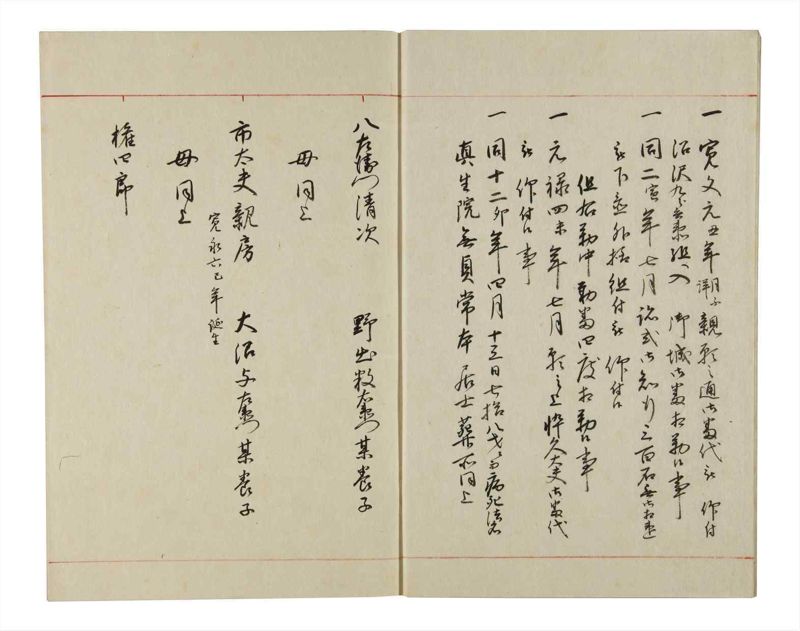 一 寛文元丑年 親願之通御番代被 仰付
沼沢九兵衛組入 御城御番相勤候事
一 同二寅年七月 御知行三百石無御相違
被下置外様組付被 仰付候
但右勤中勤番四度相勤候事
一 元禄四未年七月願之上忰久大夫御番代
被 仰付候事
一 同十二卯年四月十三日七拾八歳ニ而病死法名
真生院無負常本居士葬所同上
八左衛門清次 野出数右衛門某養子
母同上
市太夫親房 大沼与左衛門某養子
寛永六巳年誕生
母同上
権四郎